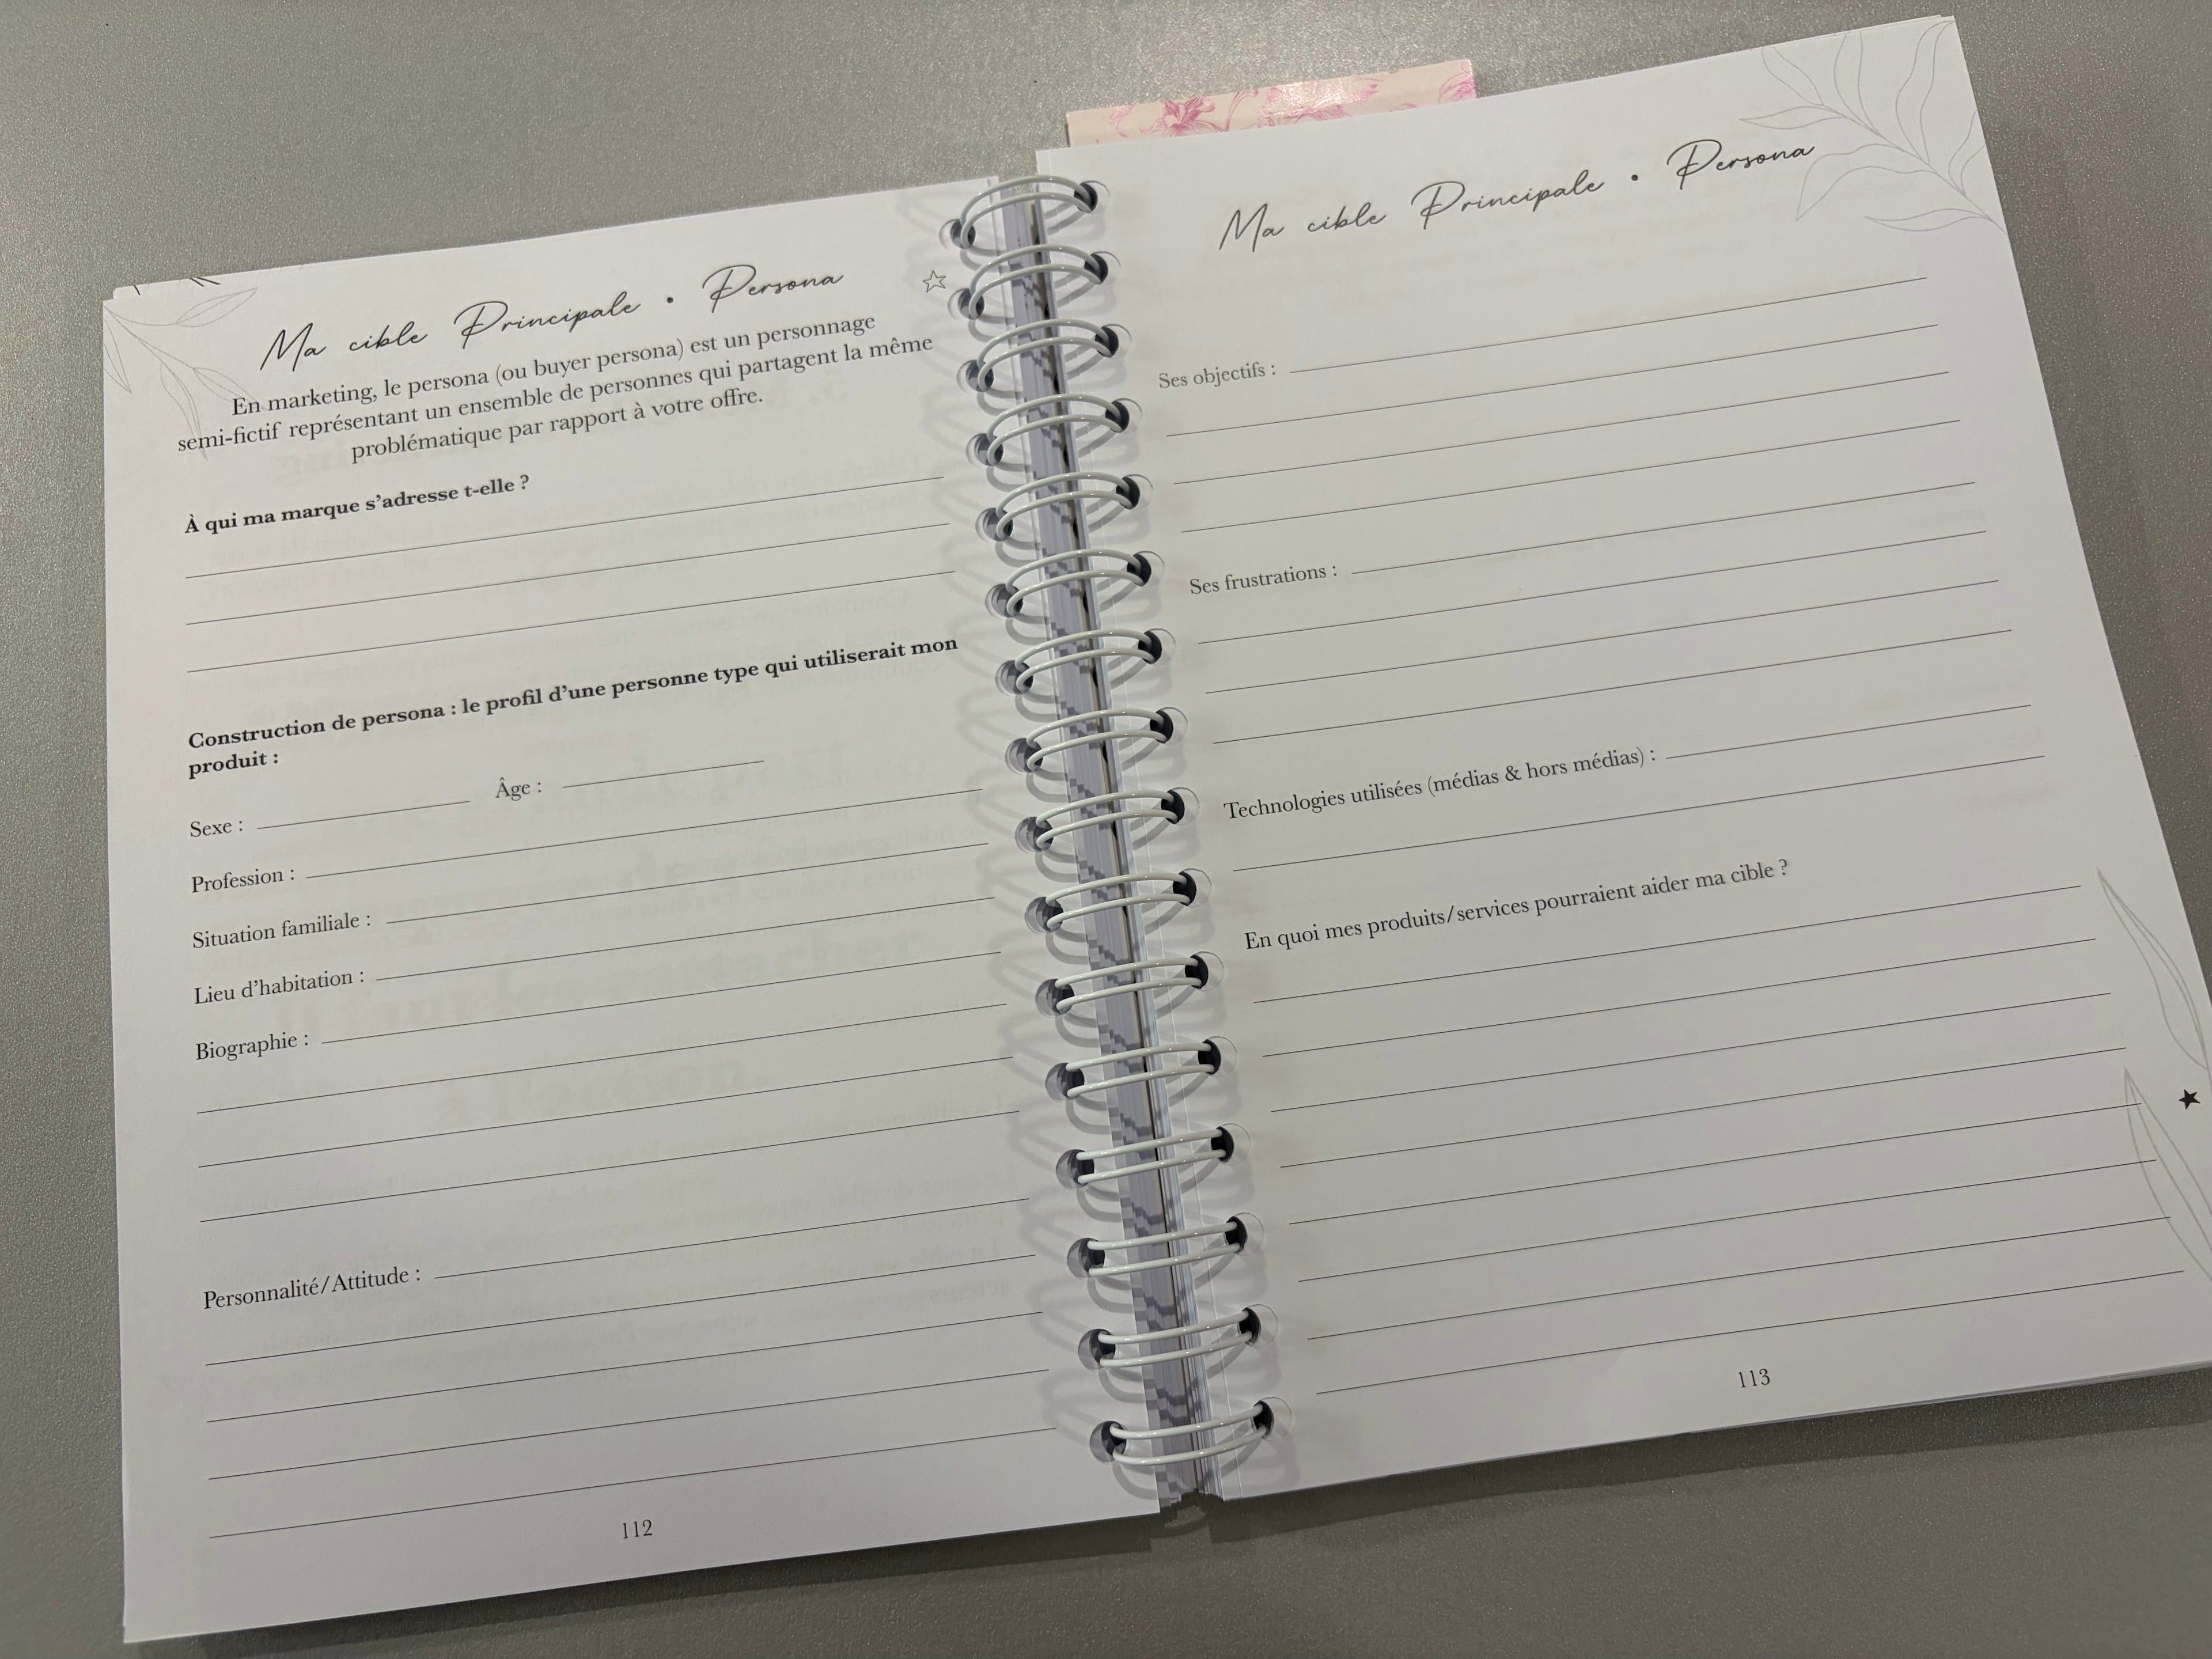 Ma cible Principale • Persona
En marketing, le persona (ou buyer persona) est un personnage
semi-fictif représentant un ensemble de personnes qui partagent la même
problématique par rapport à votre offre.
À qui ma marque s'adresse t-elle ?
Construction de persona : le profil d'une personne type qui utiliserait mon
produit :
Sexe : Âge :
Profession :
Situation familiale :
Lieu d'habitation :
Biographie :
Personnalité/Attitude :
112
Ma cible Principale • Persona
Ses objectifs :
Ses frustrations :
Technologies utilisées (médias & hors médias) :
En quoi mes produits/services pourraient aider ma cible ?
113